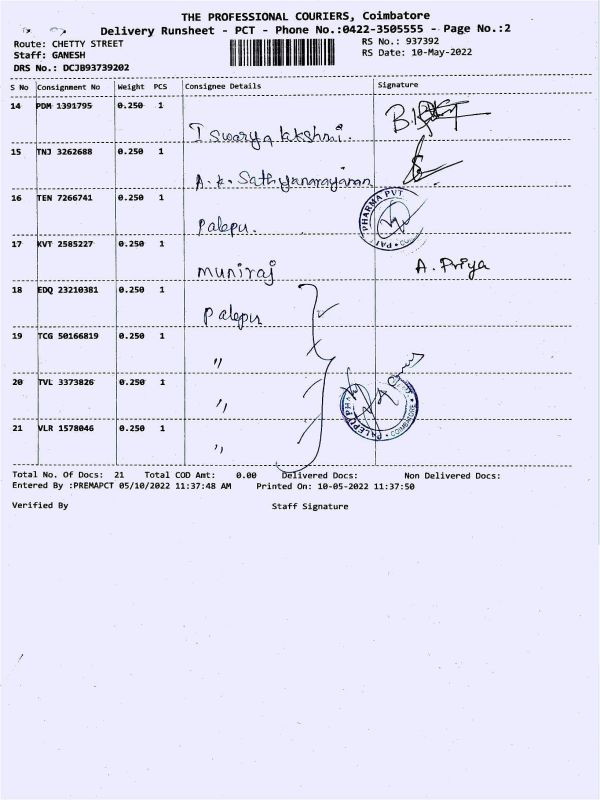 THE PROFESSIONAL COURIERS, Coimbatore
Delivery Runsheet - PCT - Phone No.:0422-3505555 - Page No.:2
Route: CHETTY STREET RS No.: 937392
Staff: GANESH RS Date: 10-May-2022
DRS No.: DCJB93739202
S No Consignment No Weight PCS Consignee Details Signature
14 PDM 1391795 0.250 1
15 TNJ 3262688 0.250 1
A.K. Sathyanarayanan
16 TEN 7266741 0.250 1
Palepu.
PHARMA PVT
17 KVT 2585227 0.250 1
Muniraj A. Priya
18 EDQ 23210381 0.250 1
Palepu
19 TCG 50166819 0.250 1
"
20 TVL 3373826 0.250 1
"
21 VLR 1578046 0.250 1
"
PALEPU PHARMA COIMBATORE
Total No. Of Docs: 21 Total COD Amt: 0.00 Delivered Docs: Non Delivered Docs:
Entered By :PREMAPCT 05/10/2022 11:37:48 AM Printed On: 10-05-2022 11:37:50
Verified By Staff Signature